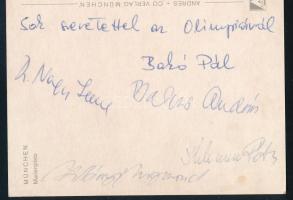 ANDRES + CO VERLAG MÜNCHEN
Sok szeretettel az Olimpiáról
Bakó Pál
Z. Nagy Imre
Balczó András
MÜNCHEN
Marienplatz